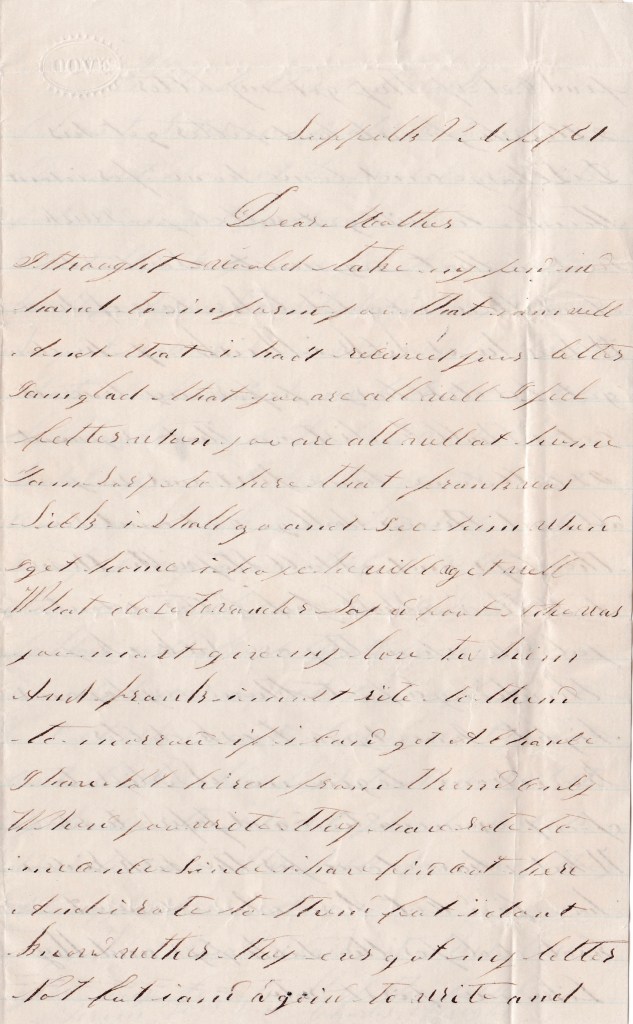 Dear Mother
I thought i would take my pen in
hand to in form you that i am well
And that i had received your letter
I am glad that you are all well I feel
better when you are all well at home
I am Sory to here that frank was
Sick i shall go and See him when
I get home i hope he will get well
What dose say a bout the war
you must give my love to him
And frank i must rite to them
to morrow if i can get A chance
I have not hird from them only
When you write they have rote to
me once Since i have bin out here
And i rote to them but i dont
know wether they ever got my letter
Not but i am a goin to write and